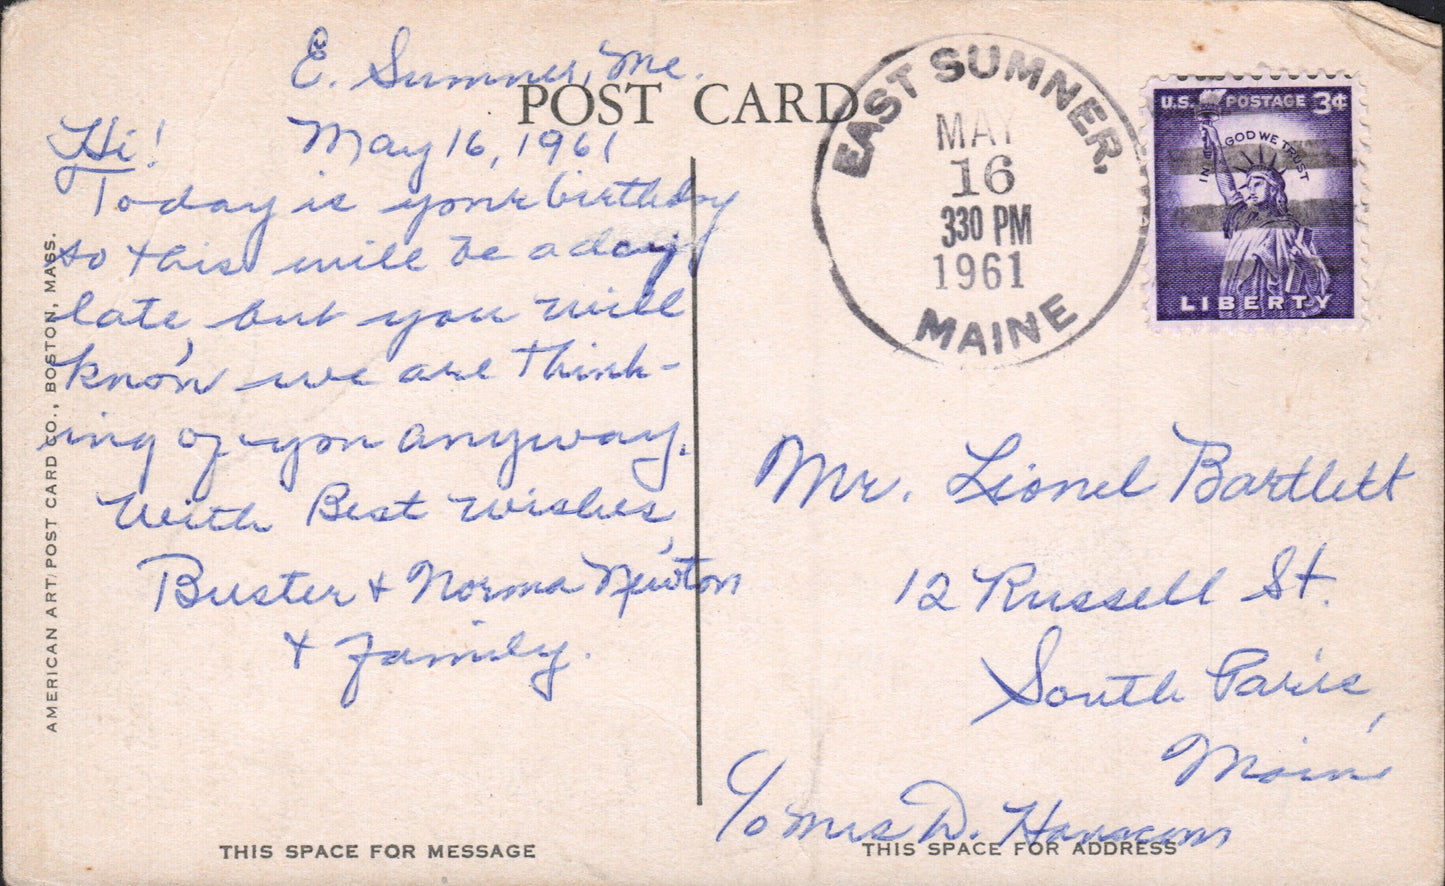 E. Sumner, Me.
POST CARD
May 16, 1961
Hi!
Today is your birthday
so this will be a day
late, but you will
know we are think-
ing of you anyway.
With Best wishes,
Buster & Norma Newton
& Family.
AMERICAN ART POST CARD CO., BOSTON, MASS.
THIS SPACE FOR MESSAGE
EAST SUMNER,
MAY
16
330 PM
1961
MAINE
U.S. POSTAGE 3¢
IN GOD WE TRUST
LIBERTY
Mr. Lionel Bartlett
12 Russell St.
South Paris,
Maine
c/o Mrs D.
THIS SPACE FOR ADDRESS